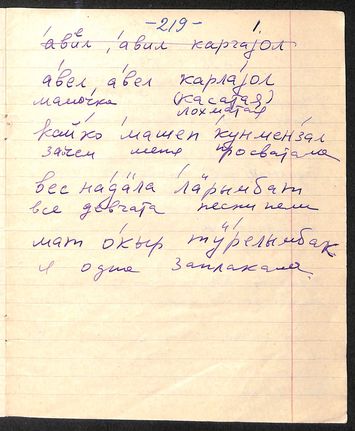 -219- 1.
а́ве́л, а́вил каргаjол
а́вел а́вел карлаjол
мамочка (касатая)
лохматая
кайко мащеп кунмензал
зачем меня просватала
вес на́да́ла лӓрымбат
все девчата песни пели
мат о́кыр тӱрелымбак
я одна заплакала.